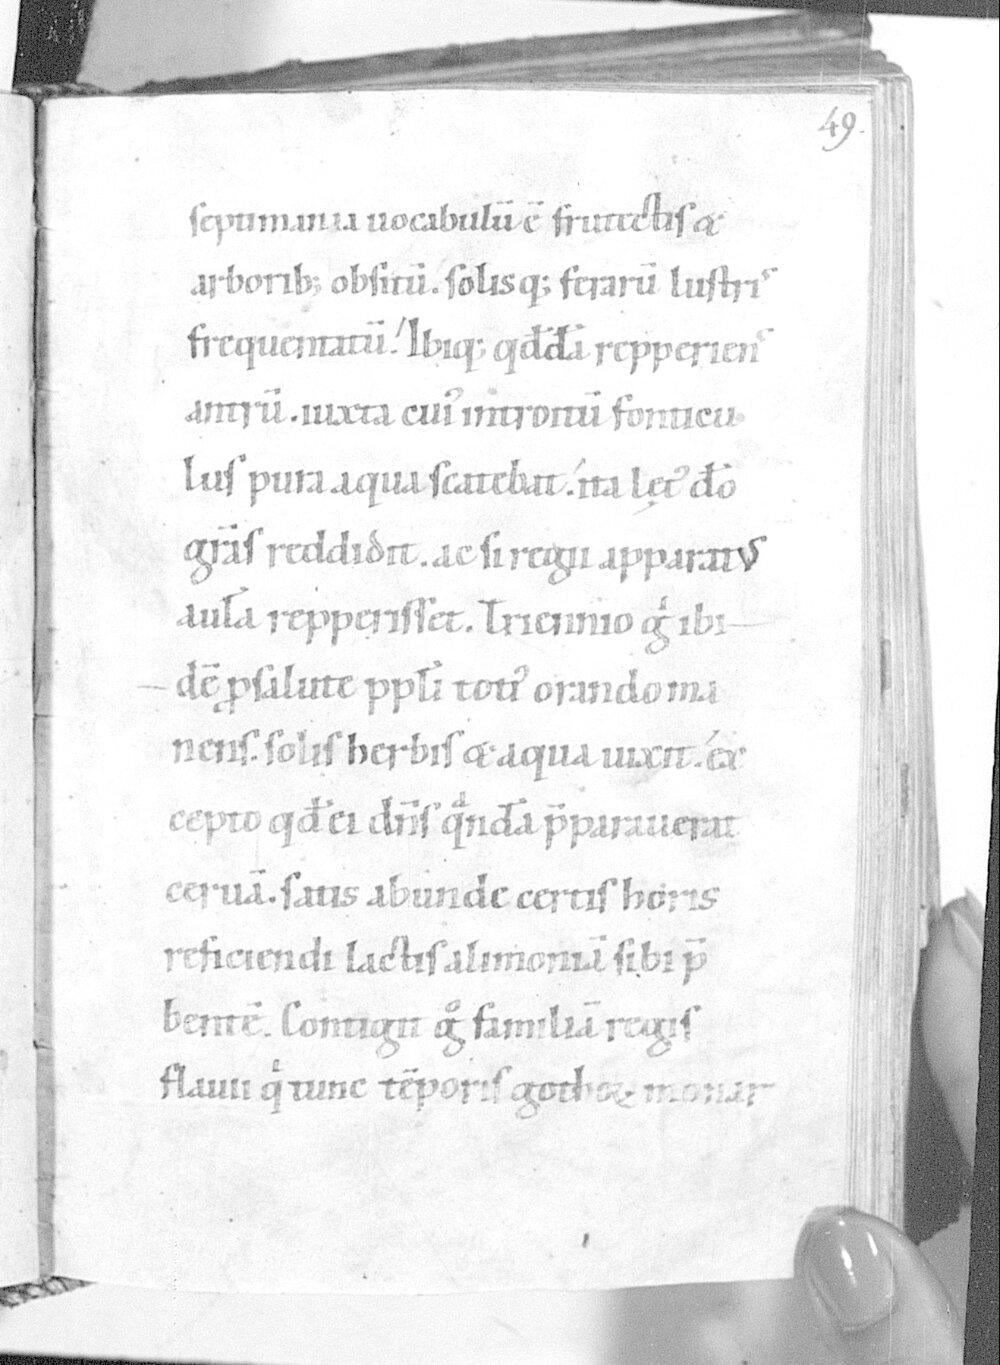 49.
septimania uocabulū ē frutectis &
arborib; obsitū. solisq; ferarū lustris
frequentatū. Ibiq; qđdā repperiens
antrū. iuxta cui᾿ introitū fonticu
lus pura aqua scatebat. ita lęt᾿ dō
grās reddidit. ac si regii apparatus
aulā repperisset. Triennio gⁱ ibi
dē ꝓ salute ppłi toti᾿ orando ma
nens. solis herbis & aqua uixit. ex
cepto qđ ei dn̄s qᵃndā p̄parauerat
ceruā. satis abunde certis horis
reficiendi lactis alimoniā sibi p̄
bentē. Contigit gͦ familiā regis
flauii qⁱ tunc tēporis gothoꝝ monar